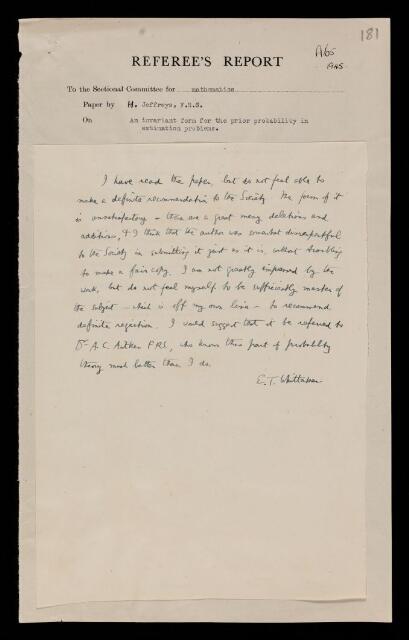 181
A65
AWS
REFEREE'S REPORT
To the Sectional Committee for mathematics
Paper by H. Jeffreys, F.R.S.
On An invariant form for the prior probability in
estimation problems.
I have read the paper, but do not feel able to
make a definite recommendation to the Society. The form of it
is unsatisfactory – there are a great many deletions and
additions, & I think that the author was somewhat disrespectful
to the Society in submitting it just as it is, without troubling
to make a fair copy. I am not greatly impressed by the
work, but do not feel myself to be sufficiently master of
the subject – which is off my own line – to recommend
definite rejection. I would suggest that it be referred to
Dr A.C. Aitken F.R.S., who knows this part of probability
theory much better than I do.
E. T. Whittaker